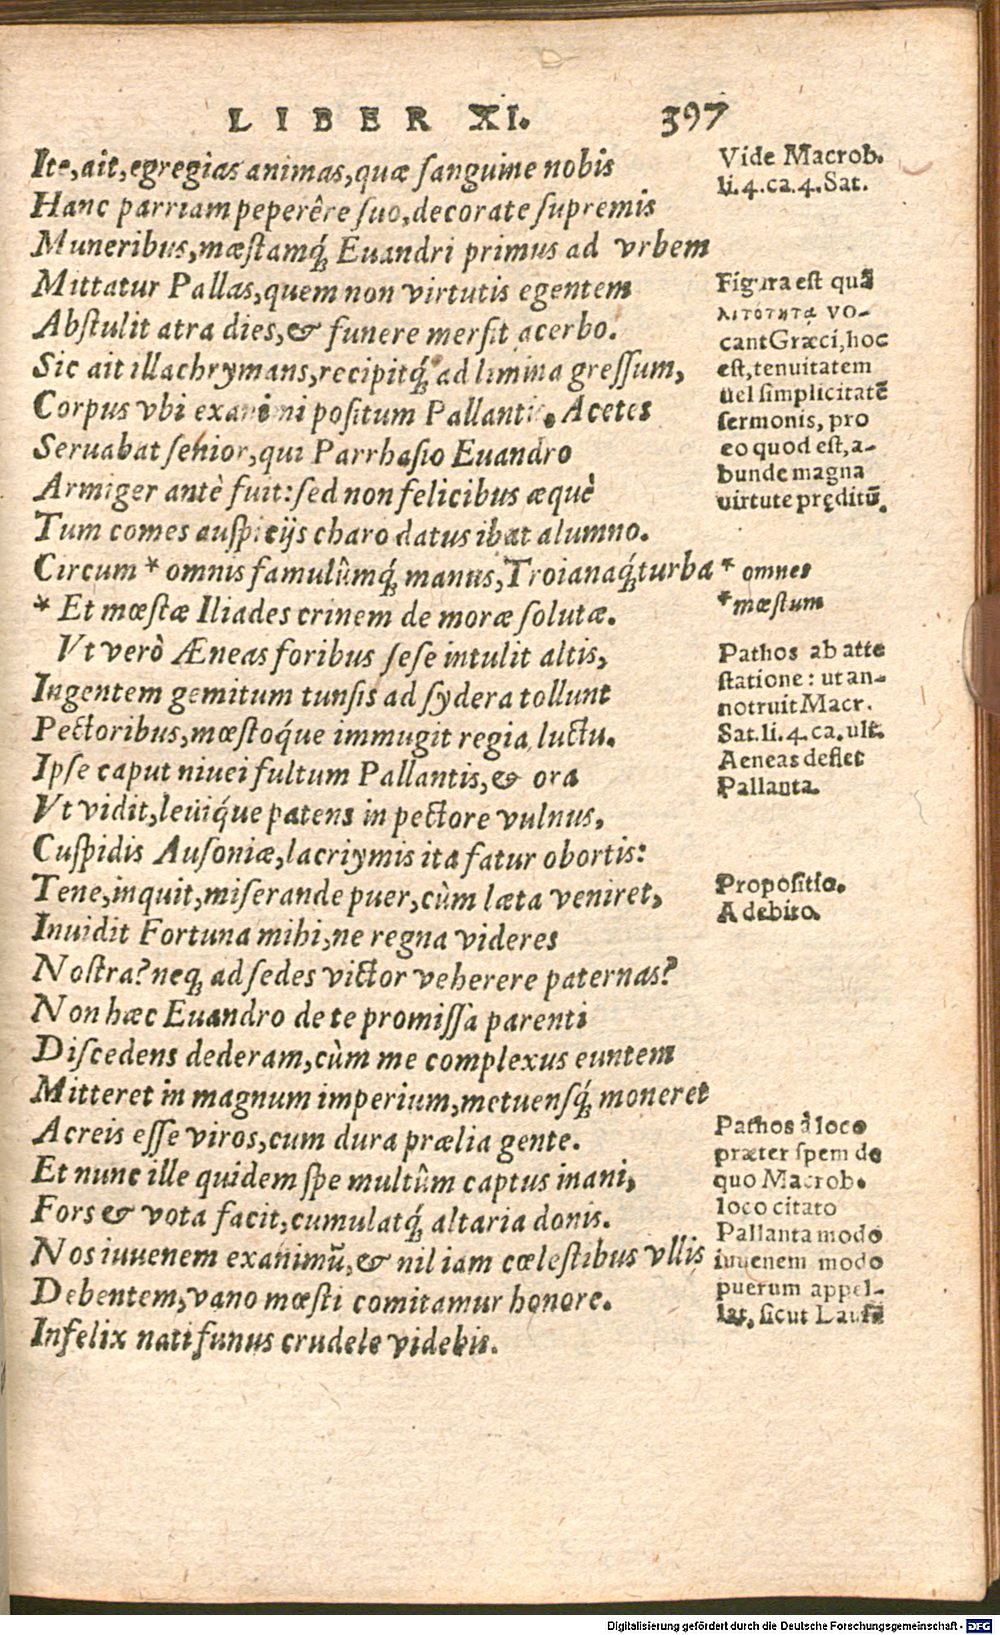 LIBER XI. 397
Ite, ait, egregias animas, quæ ſanguine nobis
Hanc parriam peperêre ſuo, decorate ſupremis
Muneribus, mœſtamq́; Euandri primus ad vrbem
Mittatur Pallas, quem non virtutis egentem
Abſtulit atra dies, & funere merſit acerbo.
Sic ait illachrymans, recipitq́; ad limina greſſum,
Corpus vbi exanimi poſitum Pallantis. Acetes
Seruabat ſenior, qui Parrhaſio Euandro
Armiger antè fuit: ſed non felicibus æquè
Tum comes auſpicijs charo datus ibat alumno.
Circum * omnis famulûmq́; manus, Troianaq́; turba
* Et mœſtæ Iliades crinem de moræ ſolutæ.
Vt verò Æneas foribus ſeſe intulit altis,
Ingentem gemitum tunſis ad ſydera tollunt
Pectoribus, mœſtoq́ue immugit regia luctu.
Ipſe caput niuei fultum Pallantis, & ora
Vt vidit, leuiq́ue patens in pectore vulnus,
Cuſpidis Auſoniæ, lacriymis ita fatur obortis:
Tene, inquit, miſerande puer, cùm læta veniret,
Inuidit Fortuna mihi, ne regna videres
Noſtra? neq; ad ſedes victor veherere paternas?
Non hæc Euandro de te promiſſa parenti
Diſcedens dederam, cùm me complexus euntem
Mitteret in magnum imperium, metuenſq́; moneret
Acreis eſſe viros, cum dura prælia gente.
Et nunc ille quidem ſpe multûm captus inani,
Fors & vota facit, cumulatq́; altaria donis.
Nos iuuenem exanimũ, & nil iam cœleſtibus vllis
Debentem, vano mœſti comitamur honore.
Infelix nati funus crudele videbis.
Vide Macrob.
li. 4. ca. 4. Sat.
Figura eſt quã
λιτότητα vo-
cant Græci, hoc
eſt, tenuitatem
uel ſimplicitatẽ
ſermonis, pro
eo quod eſt, a-
bunde magna
uirtute pręditũ.
* omnes
* mœſtum
Pathos ab atte
ſtatione: ut an-
notruit Macr.
Sat. li. 4. ca. ult.
Aeneas deflet
Pallanta.
Propoſitio.
A debito.
Pathos à loco
præter ſpem de
quo Macrob.
loco citato
Pallanta modo
iuuenem modo
puerum appel-
lat, ſicut Lauſũ
Digitalisierung gefördert durch die Deutsche Forschungsgemeinschaft - DFG